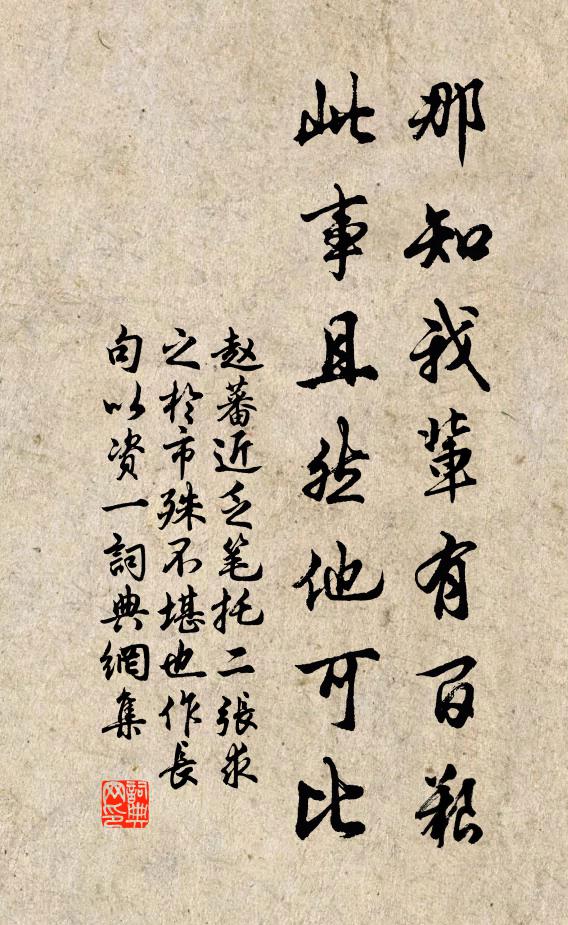 那知我輩有百艱
此事且然他可比
赵蕃近乏笔托二張求
之於市殊不堪也作長
句以资一詞典網集
詞典网印